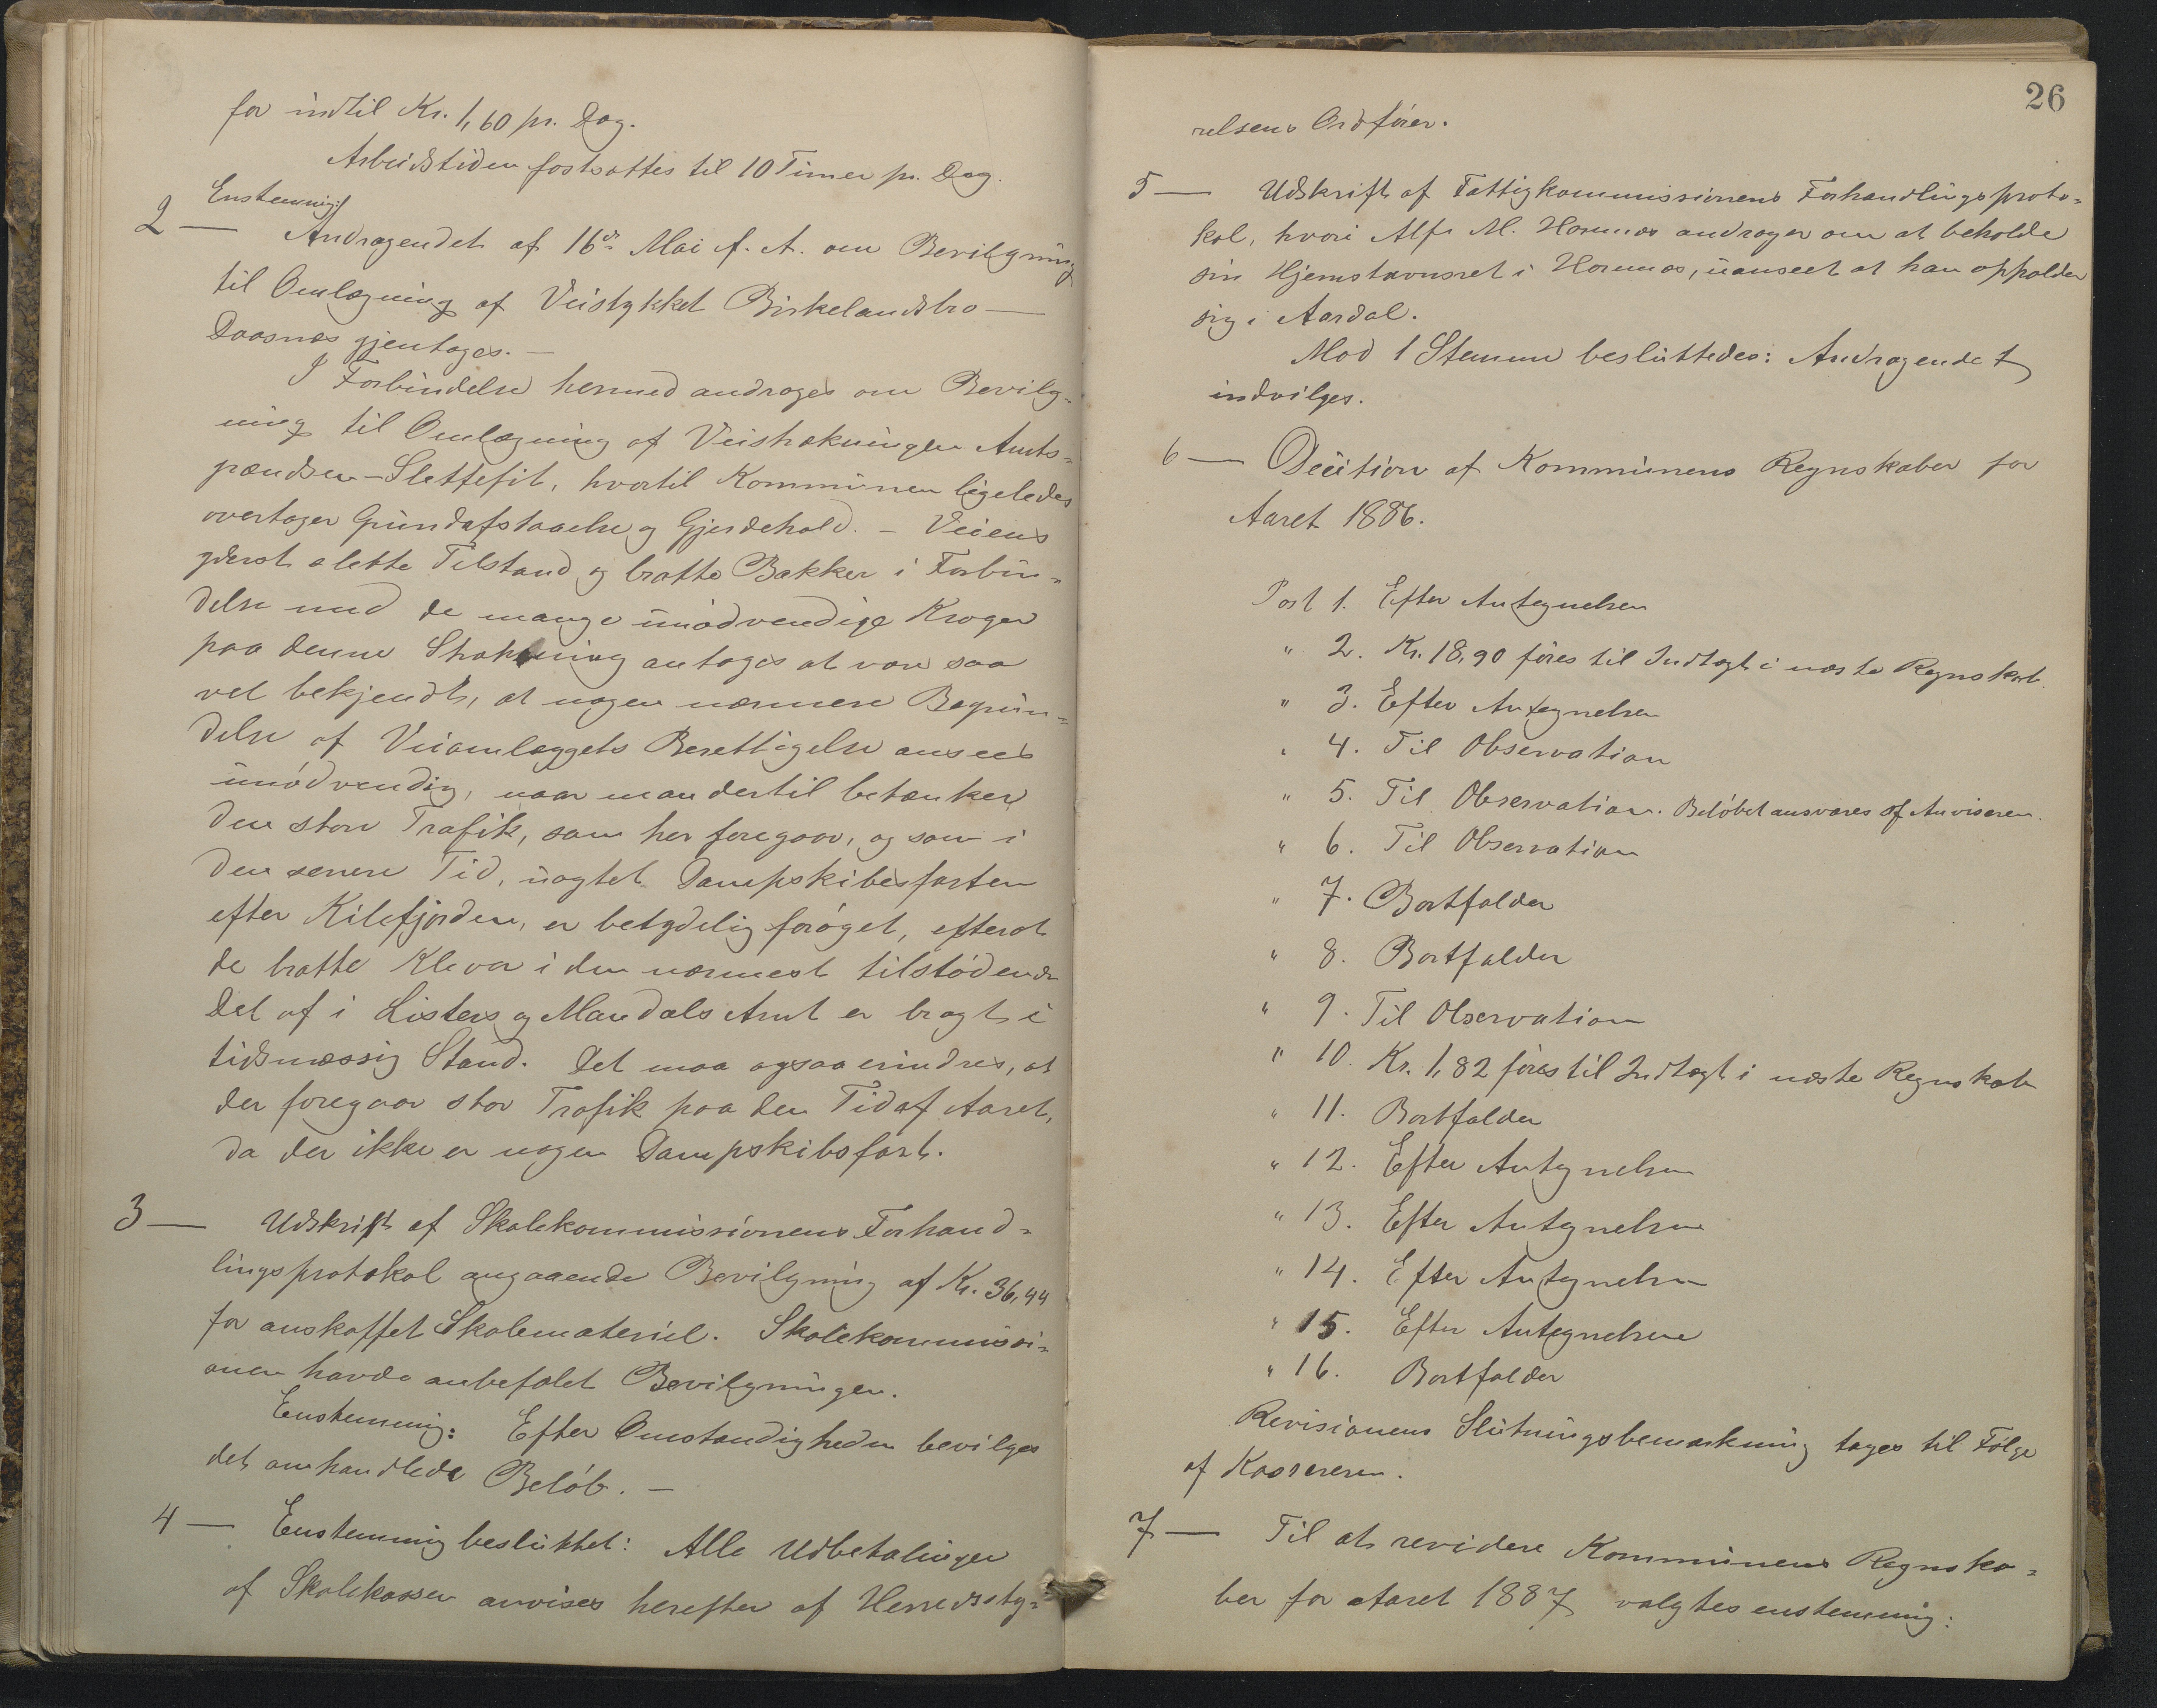 for indtil Kr. 1,60 pr. Dag.
Arbeidstiden fastsattes til 10 Timer pr. Dag.
Enstemmig:
2 — Andragendet af 16de Mai f. A. om Bevilgning
til Omlægning af Veistykket Birkelandsbro —
Daasnes gjentages. —
I Forbindelse hermed andrages om Bevilg-
ning til Omlægning af Veistrækningen Amts-
grændsen - Slettefit, hvortil Kommunen ligeledes
overtager Grundafstaaelse og Gjerdehold. - Veiens
yderst slette Tilstand og bratte Bakker i Forbin-
delse med de mange unødvendige Kroger
paa denne Strækning antages at være saa
vel bekjendt, at nogen nærmere Begrün-
delse af Veiomlæggets Berettigelse ansees
unødvendig, naar man dertil betænker
den store Trafik, som her foregaar, og som i
den senere Tid, uagtet Dampskibesfarten
efter Kilefjorden, er betydelig forøget, efterat
de bratte Klever i den nærmest tilstødende
Del af i Listers og Mandals Amt er bragt i
tidsmæssig Stand. Det maa ogsaa erindres, at
der foregaar stor Trafik paa den Tid af Aaret,
da der ikke er nogen Dampskibsfart.
3 — Udskrift af Skolekommissionens Forhand-
lingsprotokol angaaende Bevilgning af Kr. 36,44
for anskaffet Skolemateriel. Skolekommissi-
onen havde anbefalet Bevilgningen.
Enstemmig: Efter Omstændigheden bevilges
det omhandlede Beløb. —
4 — Enstemmig besluttet: Alle Udbetalinger
af Skolekassen anvises herefter af Herredssty-
26
relsens Ordfører.
5 — Udskrift af Fattigkommissionens Forhandlingsproto-
kol, hvori Alfr M. Hornnes andrager om at beholde
sin Hjemstavnsret i Hornnes, uanseet at han opholder
sig i Aardal.
Mod 1 Stemme besluttedes: Andragendet
indvilges.
6 — Decition af Kommunens Regnskaber for
Aaret 1886.
Post 1. Efter Antegnelsen
" 2. Kr. 18,90 føres til Indtægt i næste Regnskab.
" 3. Efter Antegnelsen
" 4. Til Observation
" 5. Til Observation. Beløbet ansvares af Anviseren.
" 6. Til Observation
" 7. Bortfalder
" 8. Bortfalder
" 9. Til Observation
" 10. Kr. 1,82 føres til Indtægt i næste Regnskab
" 11. Bortfalder
" 12. Efter Antegnelsen
" 13. Efter Antegnelsen
" 14. Efter Antegnelsen
" 15. Efter Antegnelsen
" 16. Bortfalder
Revisionens Slutningsbemærkning tages til Følge
af Kassereren.
7 — Til at revidere Kommunens Regnska-
ber for Aaret 1887 valgtes enstemmig: